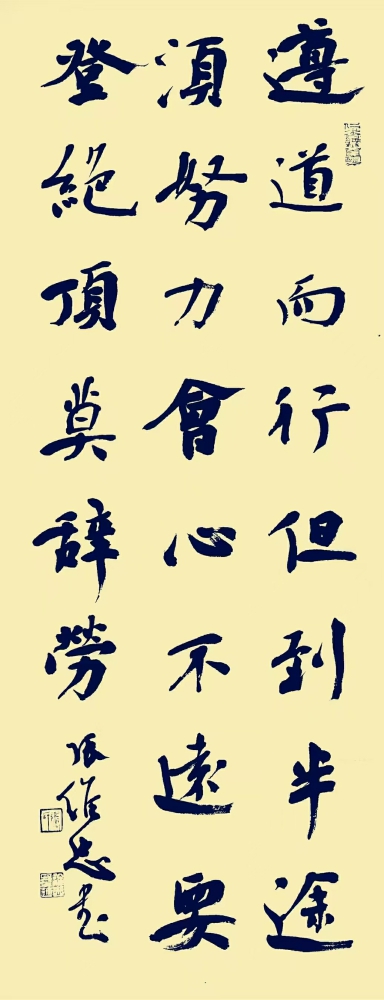 遵道而行但到半途
須努力會心不遠要
登絶頂莫辞勞
張維忠書